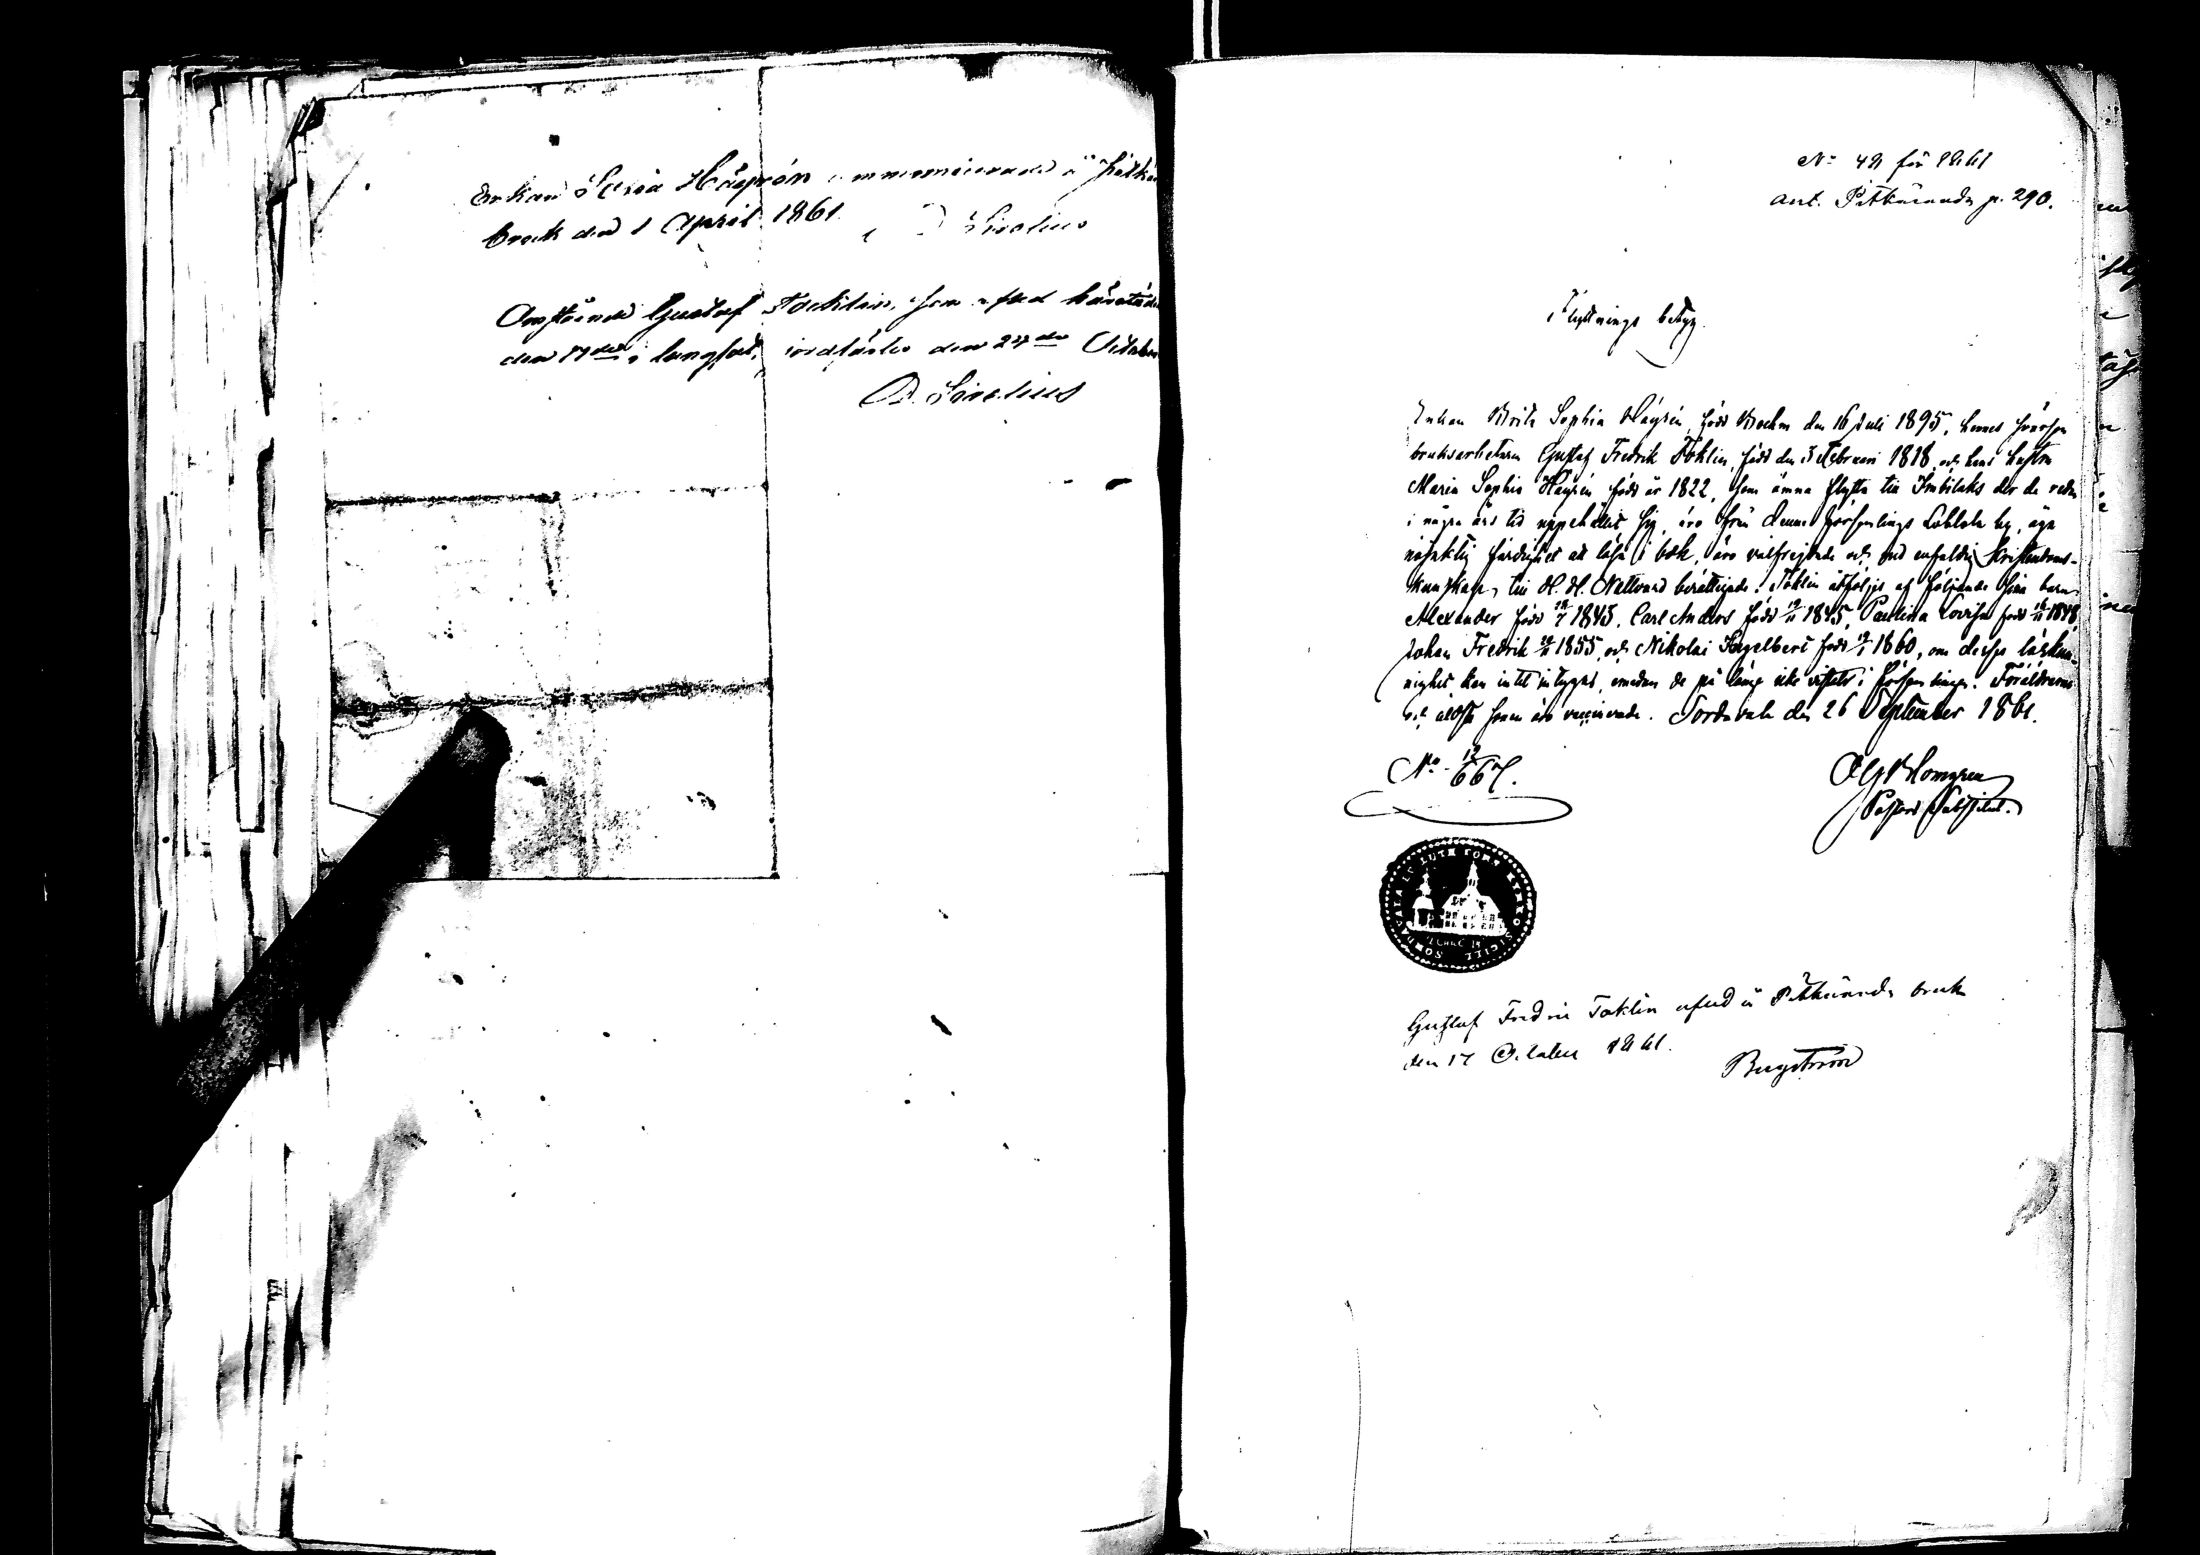 Enkan Häyrén communicerade å Pitkä
bruk den 1 April 1861.
Sirelius
Omstående Gustaf Tocklin, som afled härstädes
den 17de i lungsot, jordfästes den 27de October
D. Sirelius
No 49 för 1861
ant. Pitkäranda p. 290.
Flyttnings betyg.
Enkan Brita Sophia Häyrén, född den 16 Juli 1895, hennes svärson
bruksarbetaren Gustaf Fredrik Toklin, född den 3 Februari 1818, och hans hustru
Maria Sophia Häyrén född år 1822, som ämna flytta till Imbilaks der de redan
i några års tid uppehållit sig, äro från denna församlings by, äga
nöjaktig färdighet att läsa i bok, äro välfrejdade och med enfaldig kristendoms-
kunskap, till H. H. Nattvard berättigade. Toklin åtföljes af följande sina barn
Alexander född 1843, Carl Anders född 1845, Paulina Lovisa född 1848,
Johan Fredrik 1855, och Nikolai Engelbert född 1860, om dessas läskun-
nighet kan intet intygas, emedan de på länge icke vistats i församlingen. Föräldrarne
och äldsta sonen äro vaccinerade. Sordavala den 26 September 1861.
No
Pastors Substitut.
SORDAVALA SIGILL
Gustaf Fredric Toklin afled å Pitkäranda bruk
den 17 October 1861.
Bergström